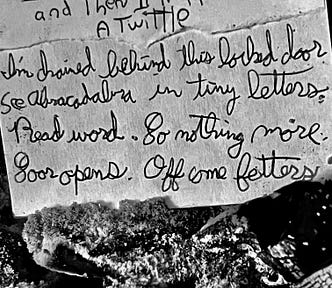 and Then I
A Twittle
I'm chained behind this locked door.
See Abracadabra in tiny letters.
Read word. Do nothing more.
Door opens. Off come fetters